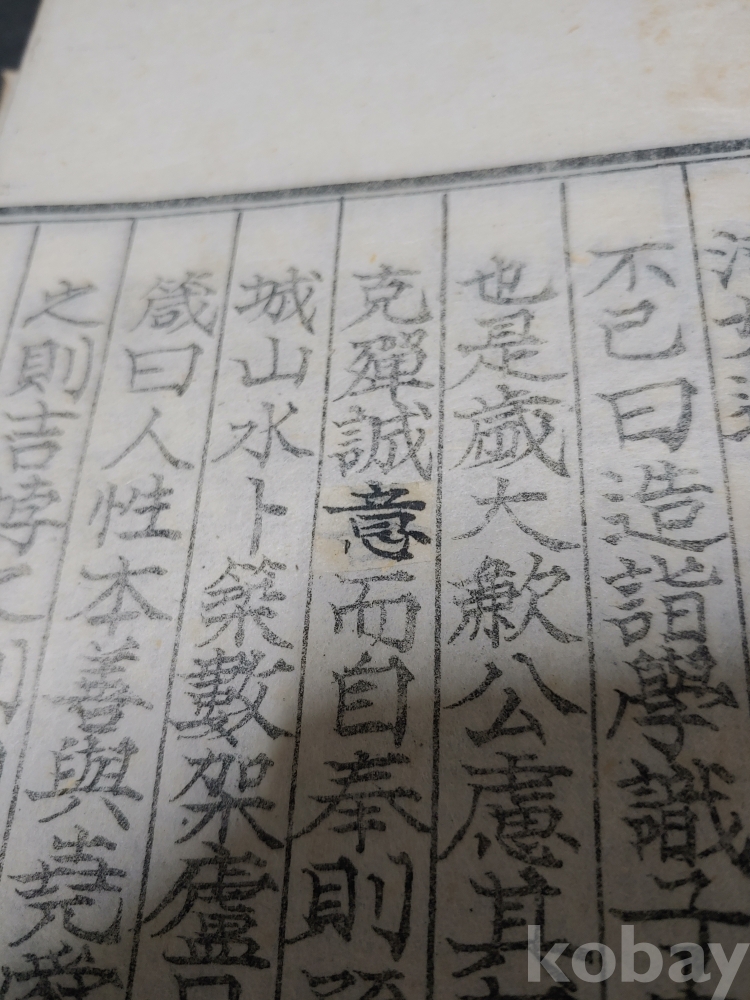 不已曰造詣學識
也是歲大歉公慮其
克殫誠意而自奉則
城山水卜築數架廬
箴曰人性本善與堯
之則吉悖之則
kobay